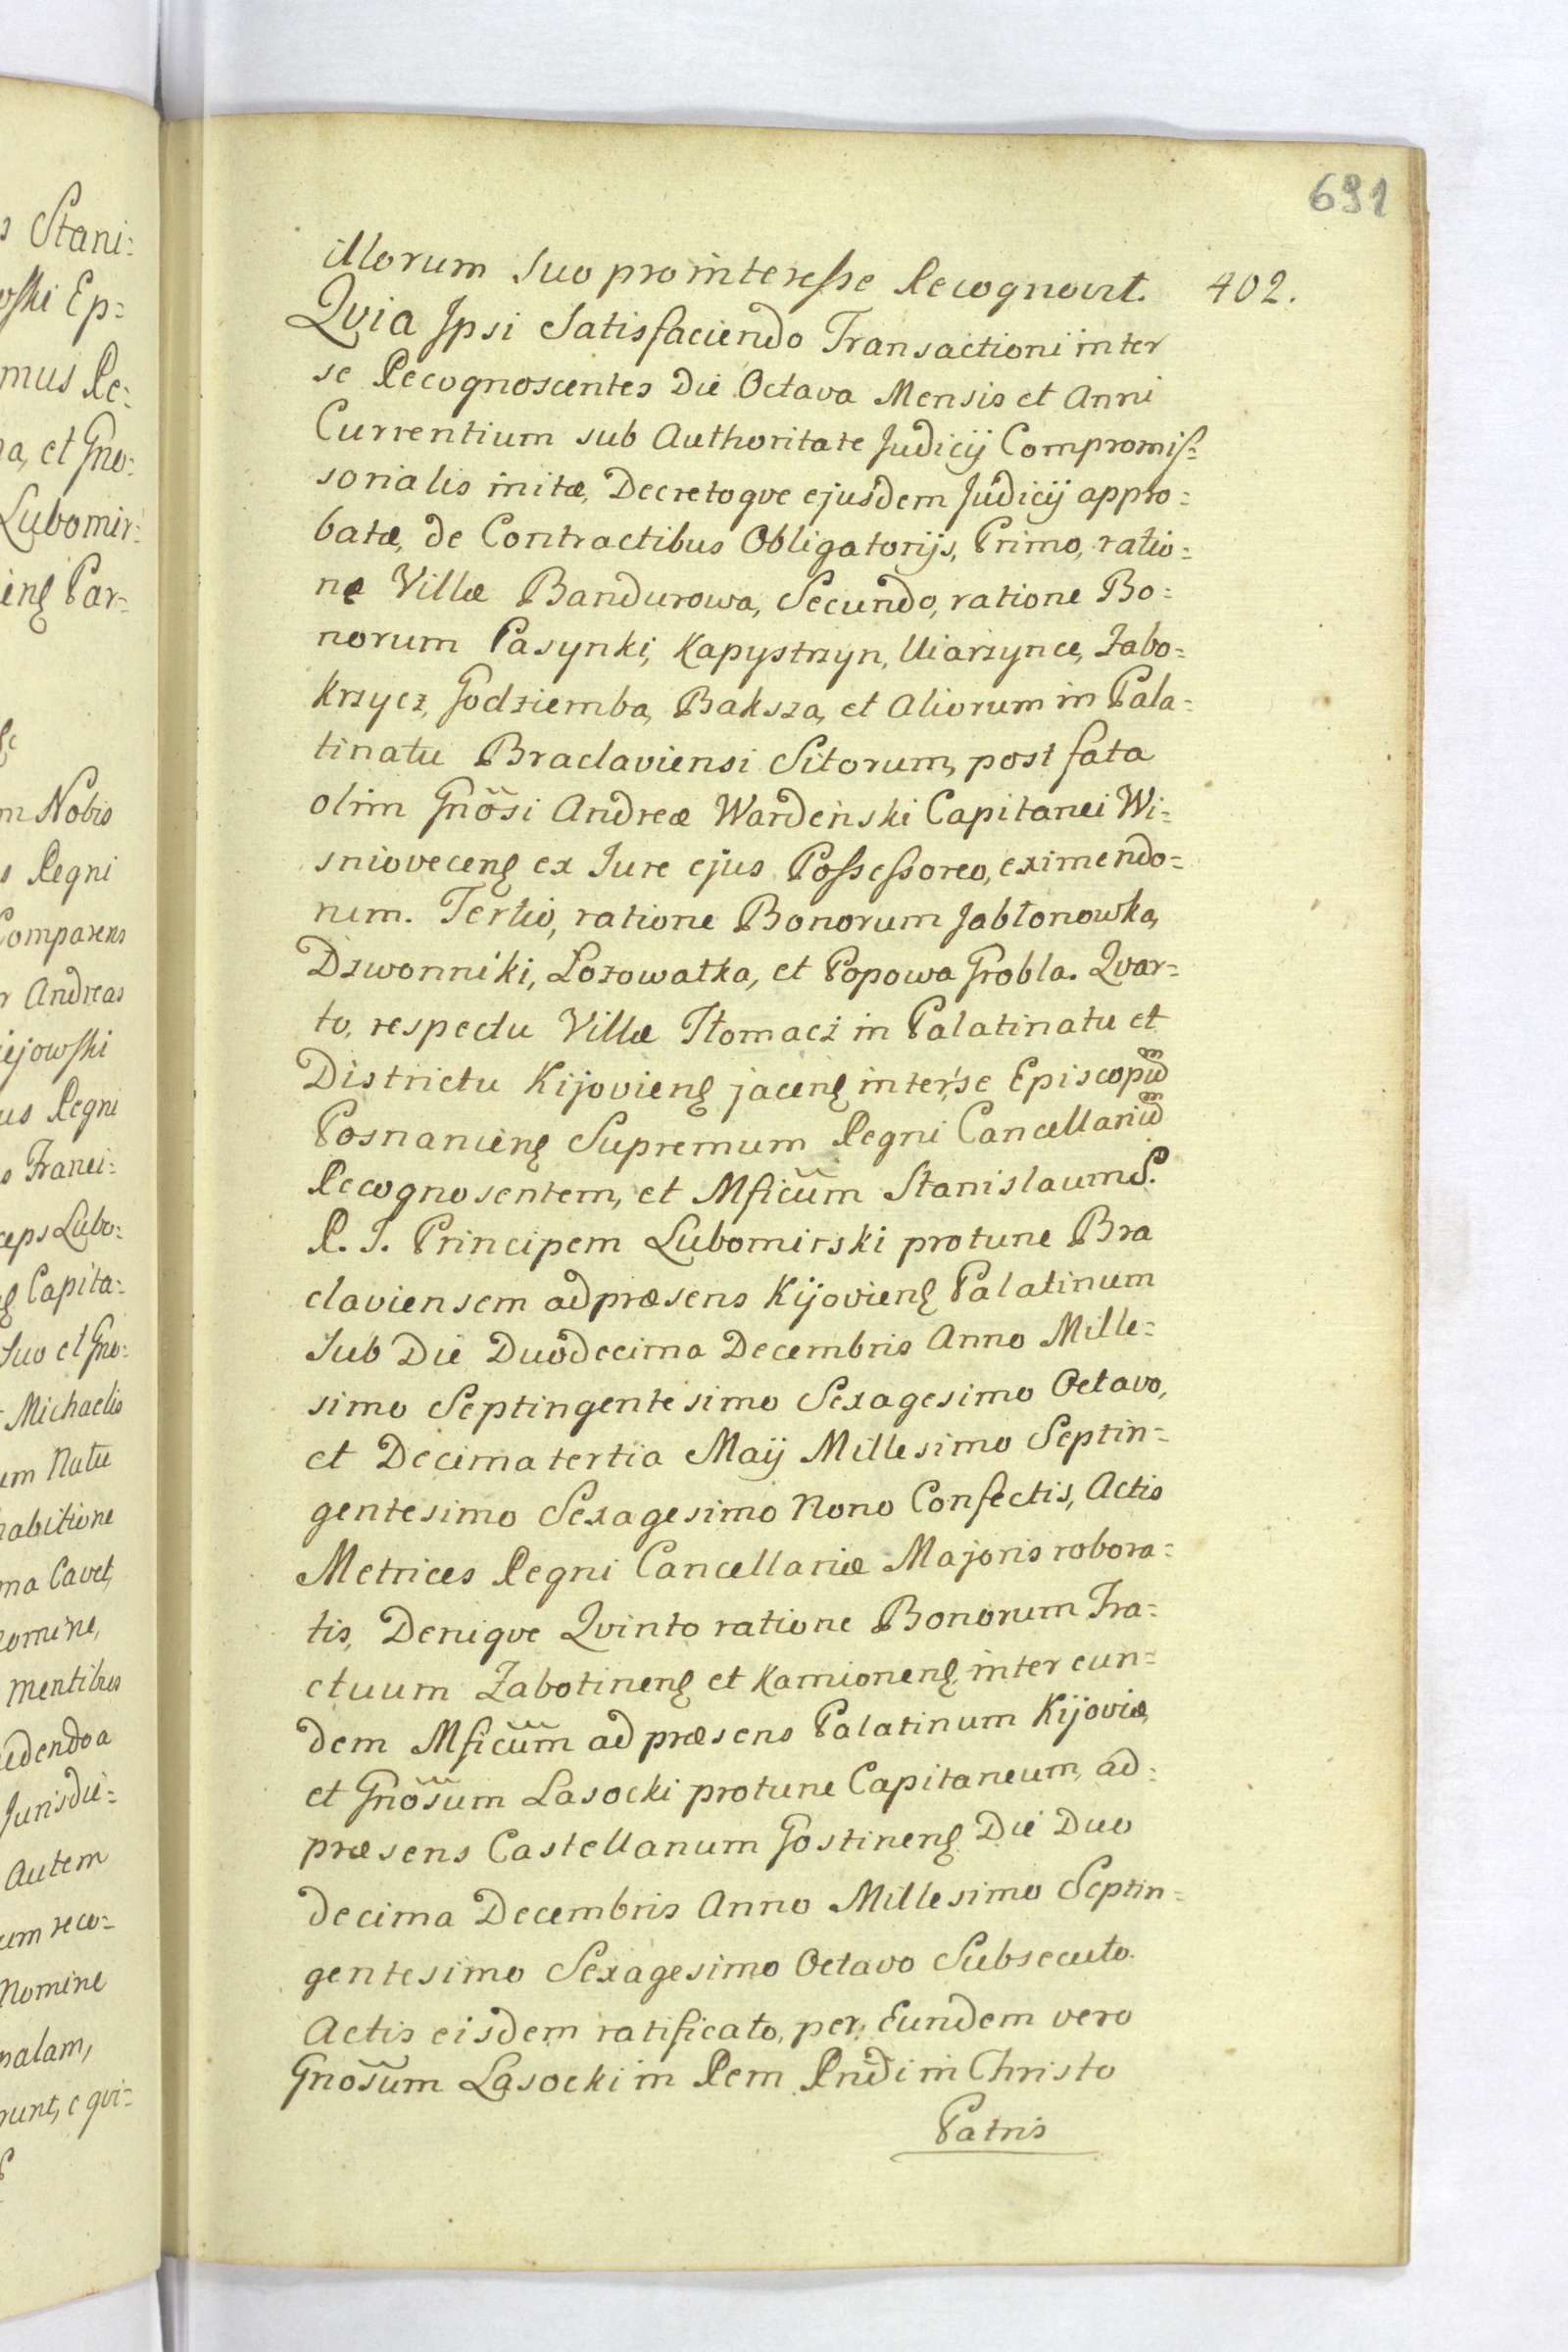 691
402.
illorum Suo pro interesse Recognovit.
Qvia Ipsi Satisfaciendo Transactioni inter
se Recognoscentes Die Octava Mensis et Anni
Currentium sub Authoritate Judicij Compromis=
sorialis initæ, Decretoqve ejusdem Judicij appro=
batæ, de Contractibus Obligatorijs, Primo, ratio=
ne Villæ Bandurowa, Secundo, ratione Bo=
norum Pasynki, Kapystrzyn, Uiarzynce, Zabo=
krzycz, Godziemba, Baksza, et Aliorum in Pala=
tinatu Braclaviensi Sitorum, post fata
olim Gnōsi Andreæ Wardeński Capitanei Wi=
snioveceng ex Jure ejus Possessoreo, eximendo=
rum. Tertio, ratione Bonorum Jabłonowka,
Dzwonniki, Łozowatka, et Popowa Grobla. Qvar=
to, respectu Villæ Tłomacz in Palatinatu et
Districtu Kijovieng jaceng inter se Episcopum
Posnanieng Supremum Regni Cancellarium
Recognosentem, et Mficum Stanislaum S.
R. I. Principem Lubomirski protunc Bra
claviensem ad præsens Kijovieng Palatinum
Sub Die Duodecima Decembris Anno Mille=
simo Septingentesimo Sexagesimo Octavo,
et Decima tertia Maij Millesimo Septin=
gentesimo Sexagesimo Nono Confectis, Actis
Metrices Regni Cancellariæ Majoris robora=
tis, Deniqve Qvinto ratione Bonorum Tra=
ctuum Zabotineng et Kamioneng inter eun=
dem Mficum ad præsens Palatinum Kijoviæ,
et Gnōsum Lasocki protunc Capitaneum, ad=
præsens Castellanum Gostineng Die Duo
decima Decembris Anno Millesimo Septin=
gentesimo Sexagesimo Octavo Subsecuto.
Actis eisdem ratificato, per Eundem vero
Gnōsum Lasocki in Rem Rndi in Christo
Patris
s Stani=
wski Ep=
mus Re=
na, et Gno=
Lubomir=
ieng Par=
m Nobis
s Regni
Comparens
r Andreas
iejowski
us Regni
o Franci=
ceps Lubo=
g Capita=
Suo et Gno=
Michaelis
um Natu
habitione
ma Cavet,
nomine,
mentibus
cedendo a
Jurisdic=
Autem
um reco=
Nomine
palam,
runt, e qvi=